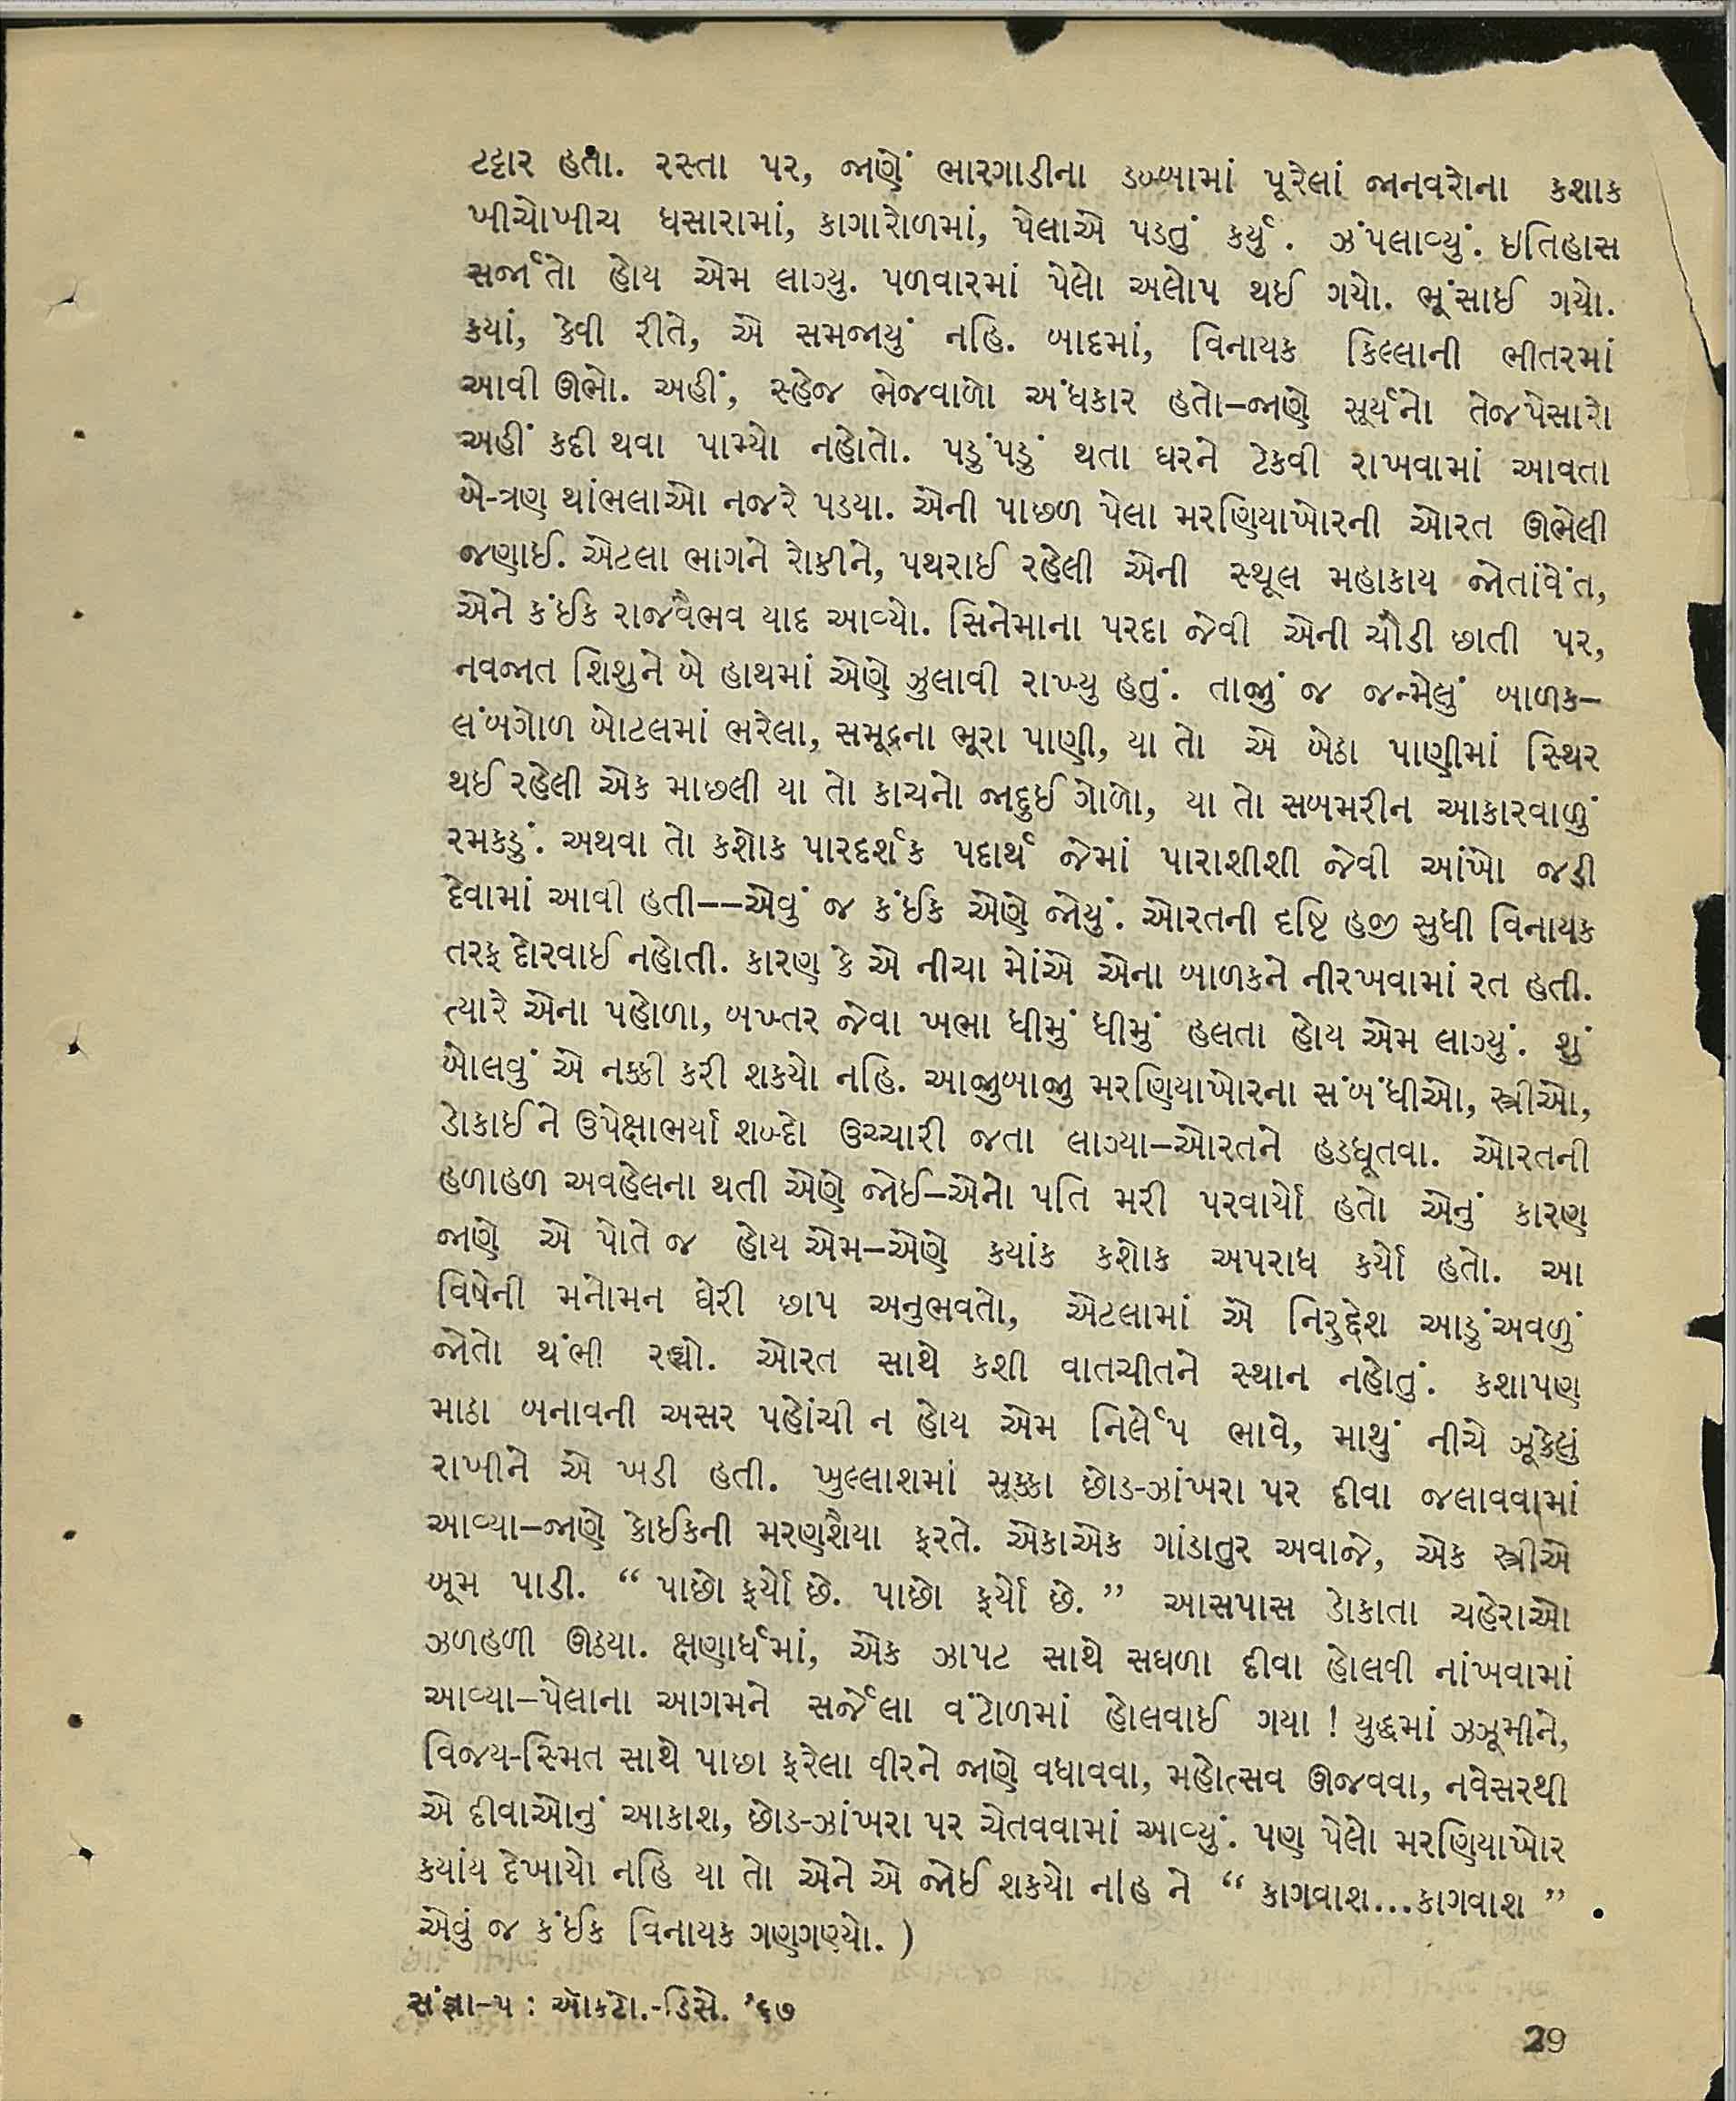 ટટ્ટાર હતા. રસ્તા પર, જાણે ભારગાડીના ડબ્બામાં પૂરેલાં જાનવરોના કશાક
ખીચોખીચ ધસારામાં, કાગારોળમાં, પેલાએ પડતું કર્યું. ઝંપલાવ્યું. ઇતિહાસ
સર્જાતો હોય એમ લાગ્યુ. પળવારમાં પેલો અલોપ થઈ ગયો. ભૂંસાઈ ગયો.
કયાં, કેવી રીતે, એ સમજાયું નહિ. બાદમાં, વિનાયક કિલ્લાની ભીતરમાં
આવી ઊભો. અહીં, સ્હેજ ભેજવાળો અંધકાર હતો—જાણે સૂર્યનો તેજપેસારો
અહીં કદી થવા પામ્યો નહોતો. પડુંપડું થતા ઘરને ટેકવી રાખવામાં આવતા
બે-ત્રણ થાંભલાઓ નજરે પડયા. એની પાછળ પેલા મરણિયાખોરની ઓરત ઊભેલી
જણાઈ. એટલા ભાગને રોકીને, પથરાઈ રહેલી એની સ્થૂલ મહાકાય જોતાંવેંત,
એને કંઈક રાજવૈભવ યાદ આવ્યો. સિનેમાના પરદા જેવી એની ચૌડી છાતી પર,
નવજાત શિશુને બે હાથમાં એણે ઝુલાવી રાખ્યુ હતું. તાજું જ જન્મેલું બાળક—
લંબગોળ બોટલમાં ભરેલા, સમૂદ્રના ભૂરા પાણી, યા તો એ બેઠા પાણીમાં સ્થિર
થઈ રહેલી એક માછલી યા તો કાચનો જાદુઈ ગોળો, યા તો સબમરીન આકારવાળું
રમકડું. અથવા તો કશોક પારદર્શક પદાર્થ જેમાં પારાશીશી જેવી આંખો જડી
દેવામાં આવી હતી——એવું જ કંઈક એણે જોયું. ઓરતની દૃષ્ટિ હજી સુધી વિનાયક
તરફ દોરવાઈ નહોતી. કારણ કે એ નીચા મોંએ એના બાળકને નીરખવામાં રત હતી.
ત્યારે એના પહોળા, બખ્તર જેવા ખભા ધીમું ધીમું હલતા હોય એમ લાગ્યું. શું
બોલવું એ નક્કી કરી શકયો નહિ. આજુબાજુ મરણિયાખોરના સંબંધીઓ, સ્ત્રીઓ,
ડોકાઈને ઉપેક્ષાભર્યા શબ્દો ઉચ્ચારી જતા લાગ્યા—ઓરતને હડધૂતવા. ઓરતની
હળાહળ અવહેલના થતી એણે જોઈ—એનો પતિ મરી પરવાર્યો હતો એનું કારણ
જાણે એ પોતે જ હોય એમ—એણે કયાંક કશોક અપરાધ કર્યો હતો. આ
વિષેની મનોમન ઘેરી છાપ અનુભવતો, એટલામાં એ નિરુદ્દેશ આડુંઅવળું
જોતો થંભી રહ્યો. ઓરત સાથે કશી વાતચીતને સ્થાન નહોતું. કશાપણ
માઠા બનાવની અસર પહોંચી ન હોય એમ નિર્લેપ ભાવે, માથું નીચે ઝૂકેલું
રાખીને એ ખડી હતી. ખુલ્લાશમાં સૂક્કા છોડ-ઝાંખરા પર દીવા જલાવવામાં
આવ્યા—જાણે કોઈકની મરણશૈયા ફરતે. એકાએક ગાંડાતુર અવાજે, એક સ્ત્રીએ
બૂમ પાડી. “ પાછો ફર્યો છે. પાછો ફર્યો છે. ” આસપાસ ડોકાતા ચહેરાઓ
ઝળહળી ઊઠયા. ક્ષણાર્ધમાં, એક ઝાપટ સાથે સઘળા દીવા હોલવી નાંખવામાં
આવ્યા—પેલાના આગમને સર્જેલા વંટોળમાં હોલવાઈ ગયા ! યુદ્ધમાં ઝઝૂમીને,
વિજય-સ્મિત સાથે પાછા ફરેલા વીરને જાણે વધાવવા, મહોત્સવ ઊજવવા, નવેસરથી
એ દીવાઓનું આકાશ, છોડ-ઝાંખરા પર ચેતવવામાં આવ્યું. પણ પેલો મરણિયાખોર
કયાંય દેખાયો નહિ યા તો એને એ જોઈ શકયો નહિ ને “ કાગવાશ...કાગવાશ ” .
એવું જ કંઈક વિનાયક ગણગણ્યો. )
સંજ્ઞા-૫ : ઑકટો.-ડિસે. ’૬૭
29